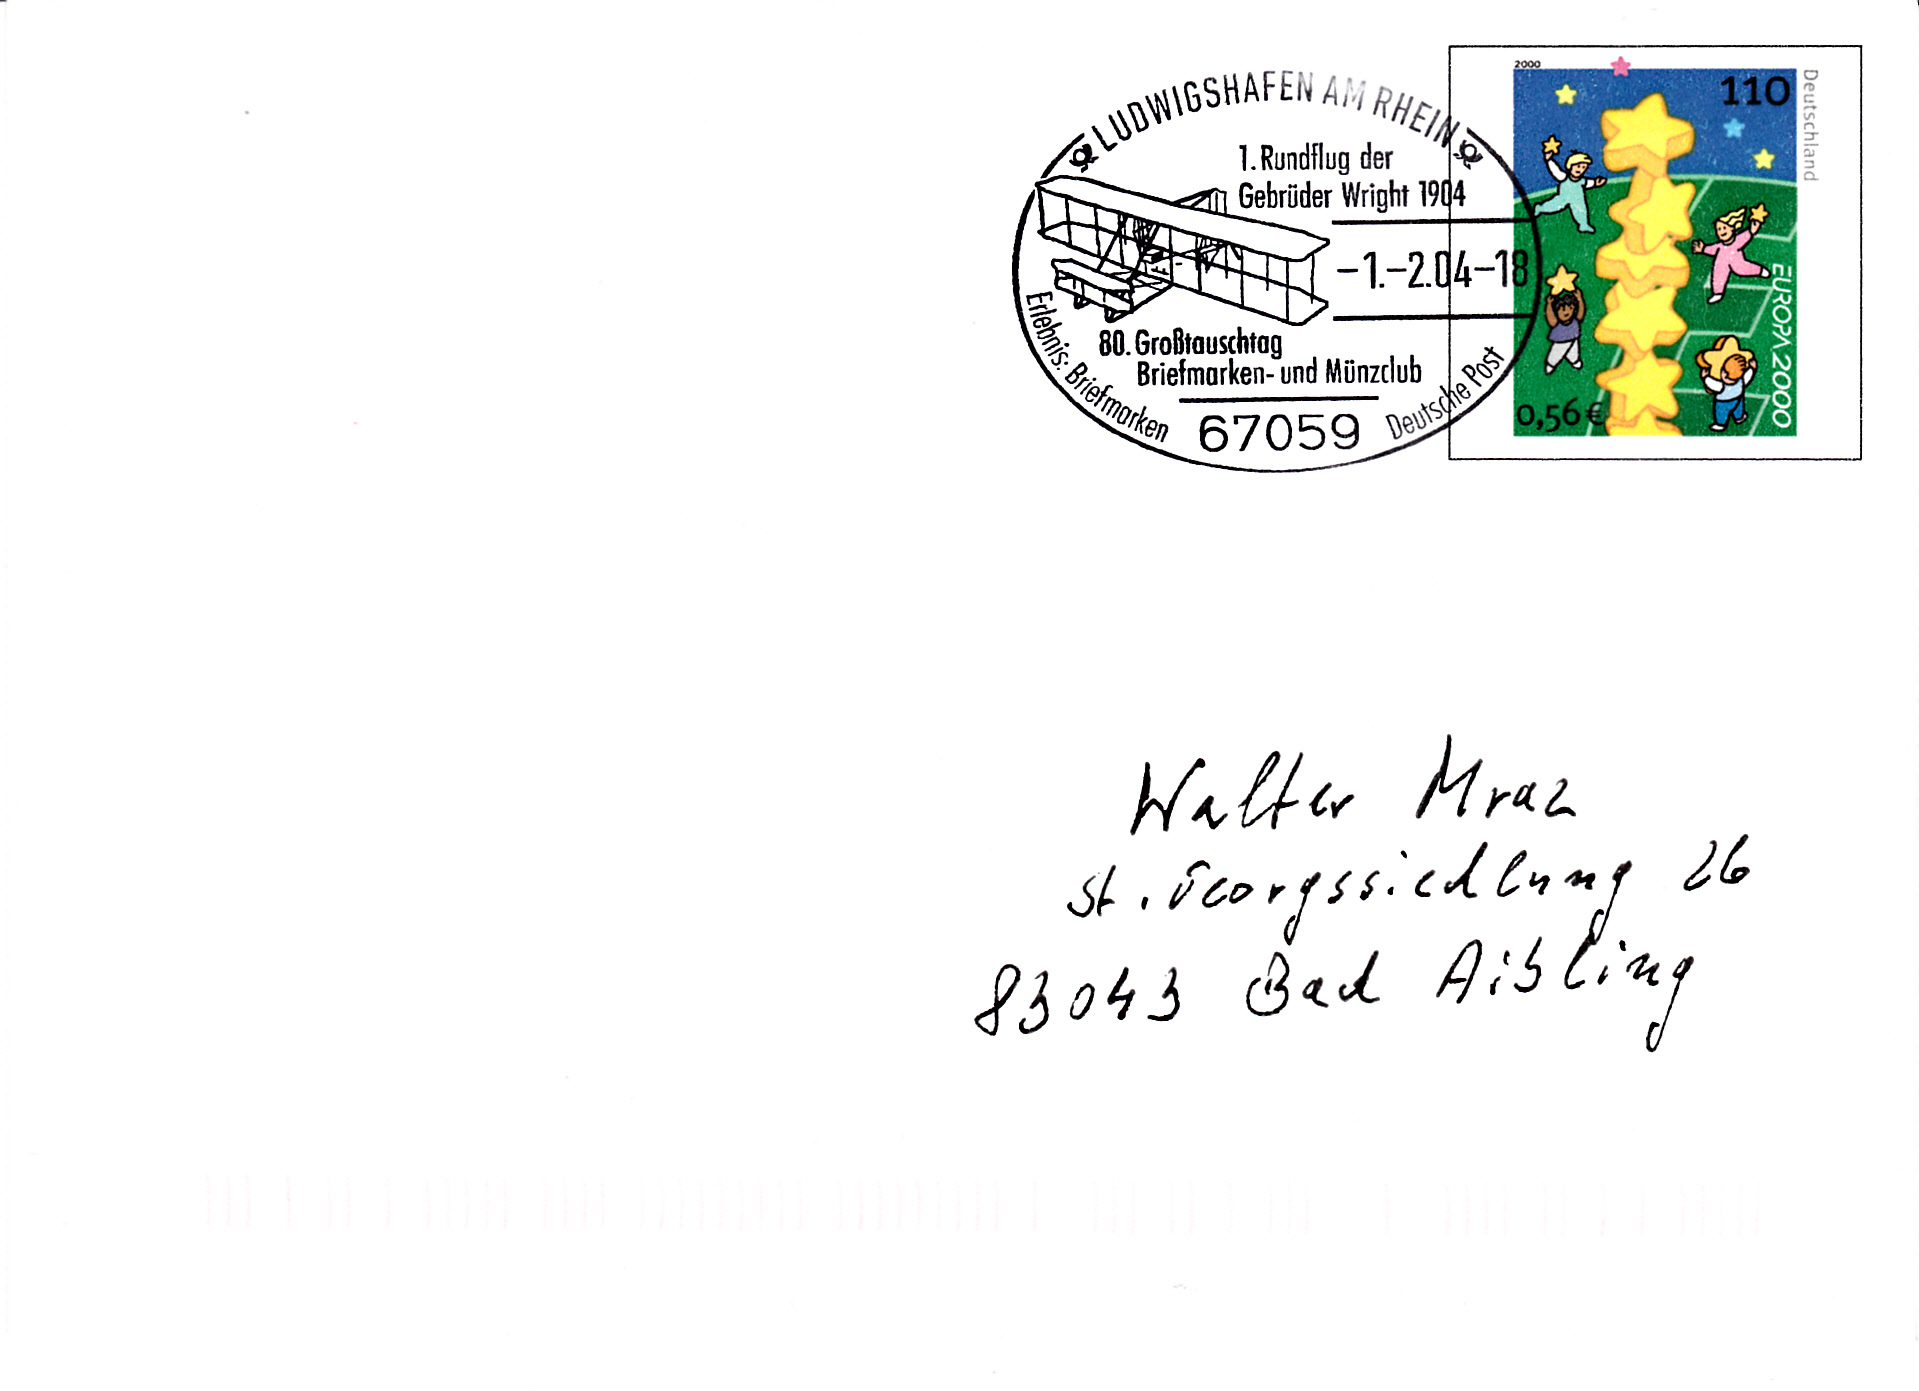 LUDWIGSHAFEN AM RHEIN
1. Rundflug der
Gebrüder Wright 1904
-1.-2.04-18
80. Großtauschtag
Briefmarken- und Münzclub
Erlebnis: Briefmarken
67059
Deutsche Post
2000
110
Deutschland
EUROPA 2000
0,56 €
Walter Mraz
St. Georgssiedlung 26
83043 Bad Aibling